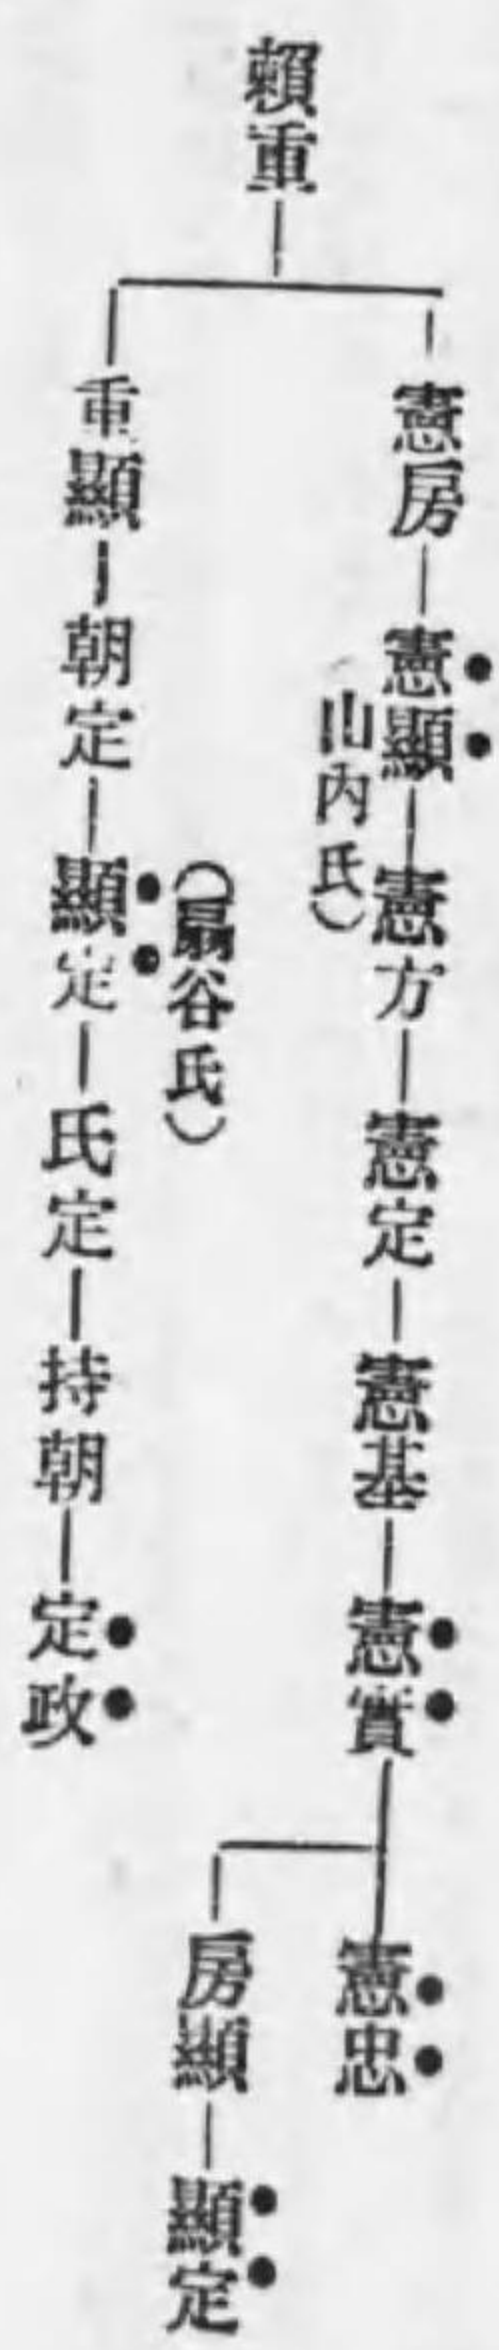 賴重
憲房─憲顯─憲方─憲定─憲基─憲實─憲忠
山內氏)
房顯─顯定
(扇谷氏)
重顯─朝定─顯定─氏定─持朝─定政